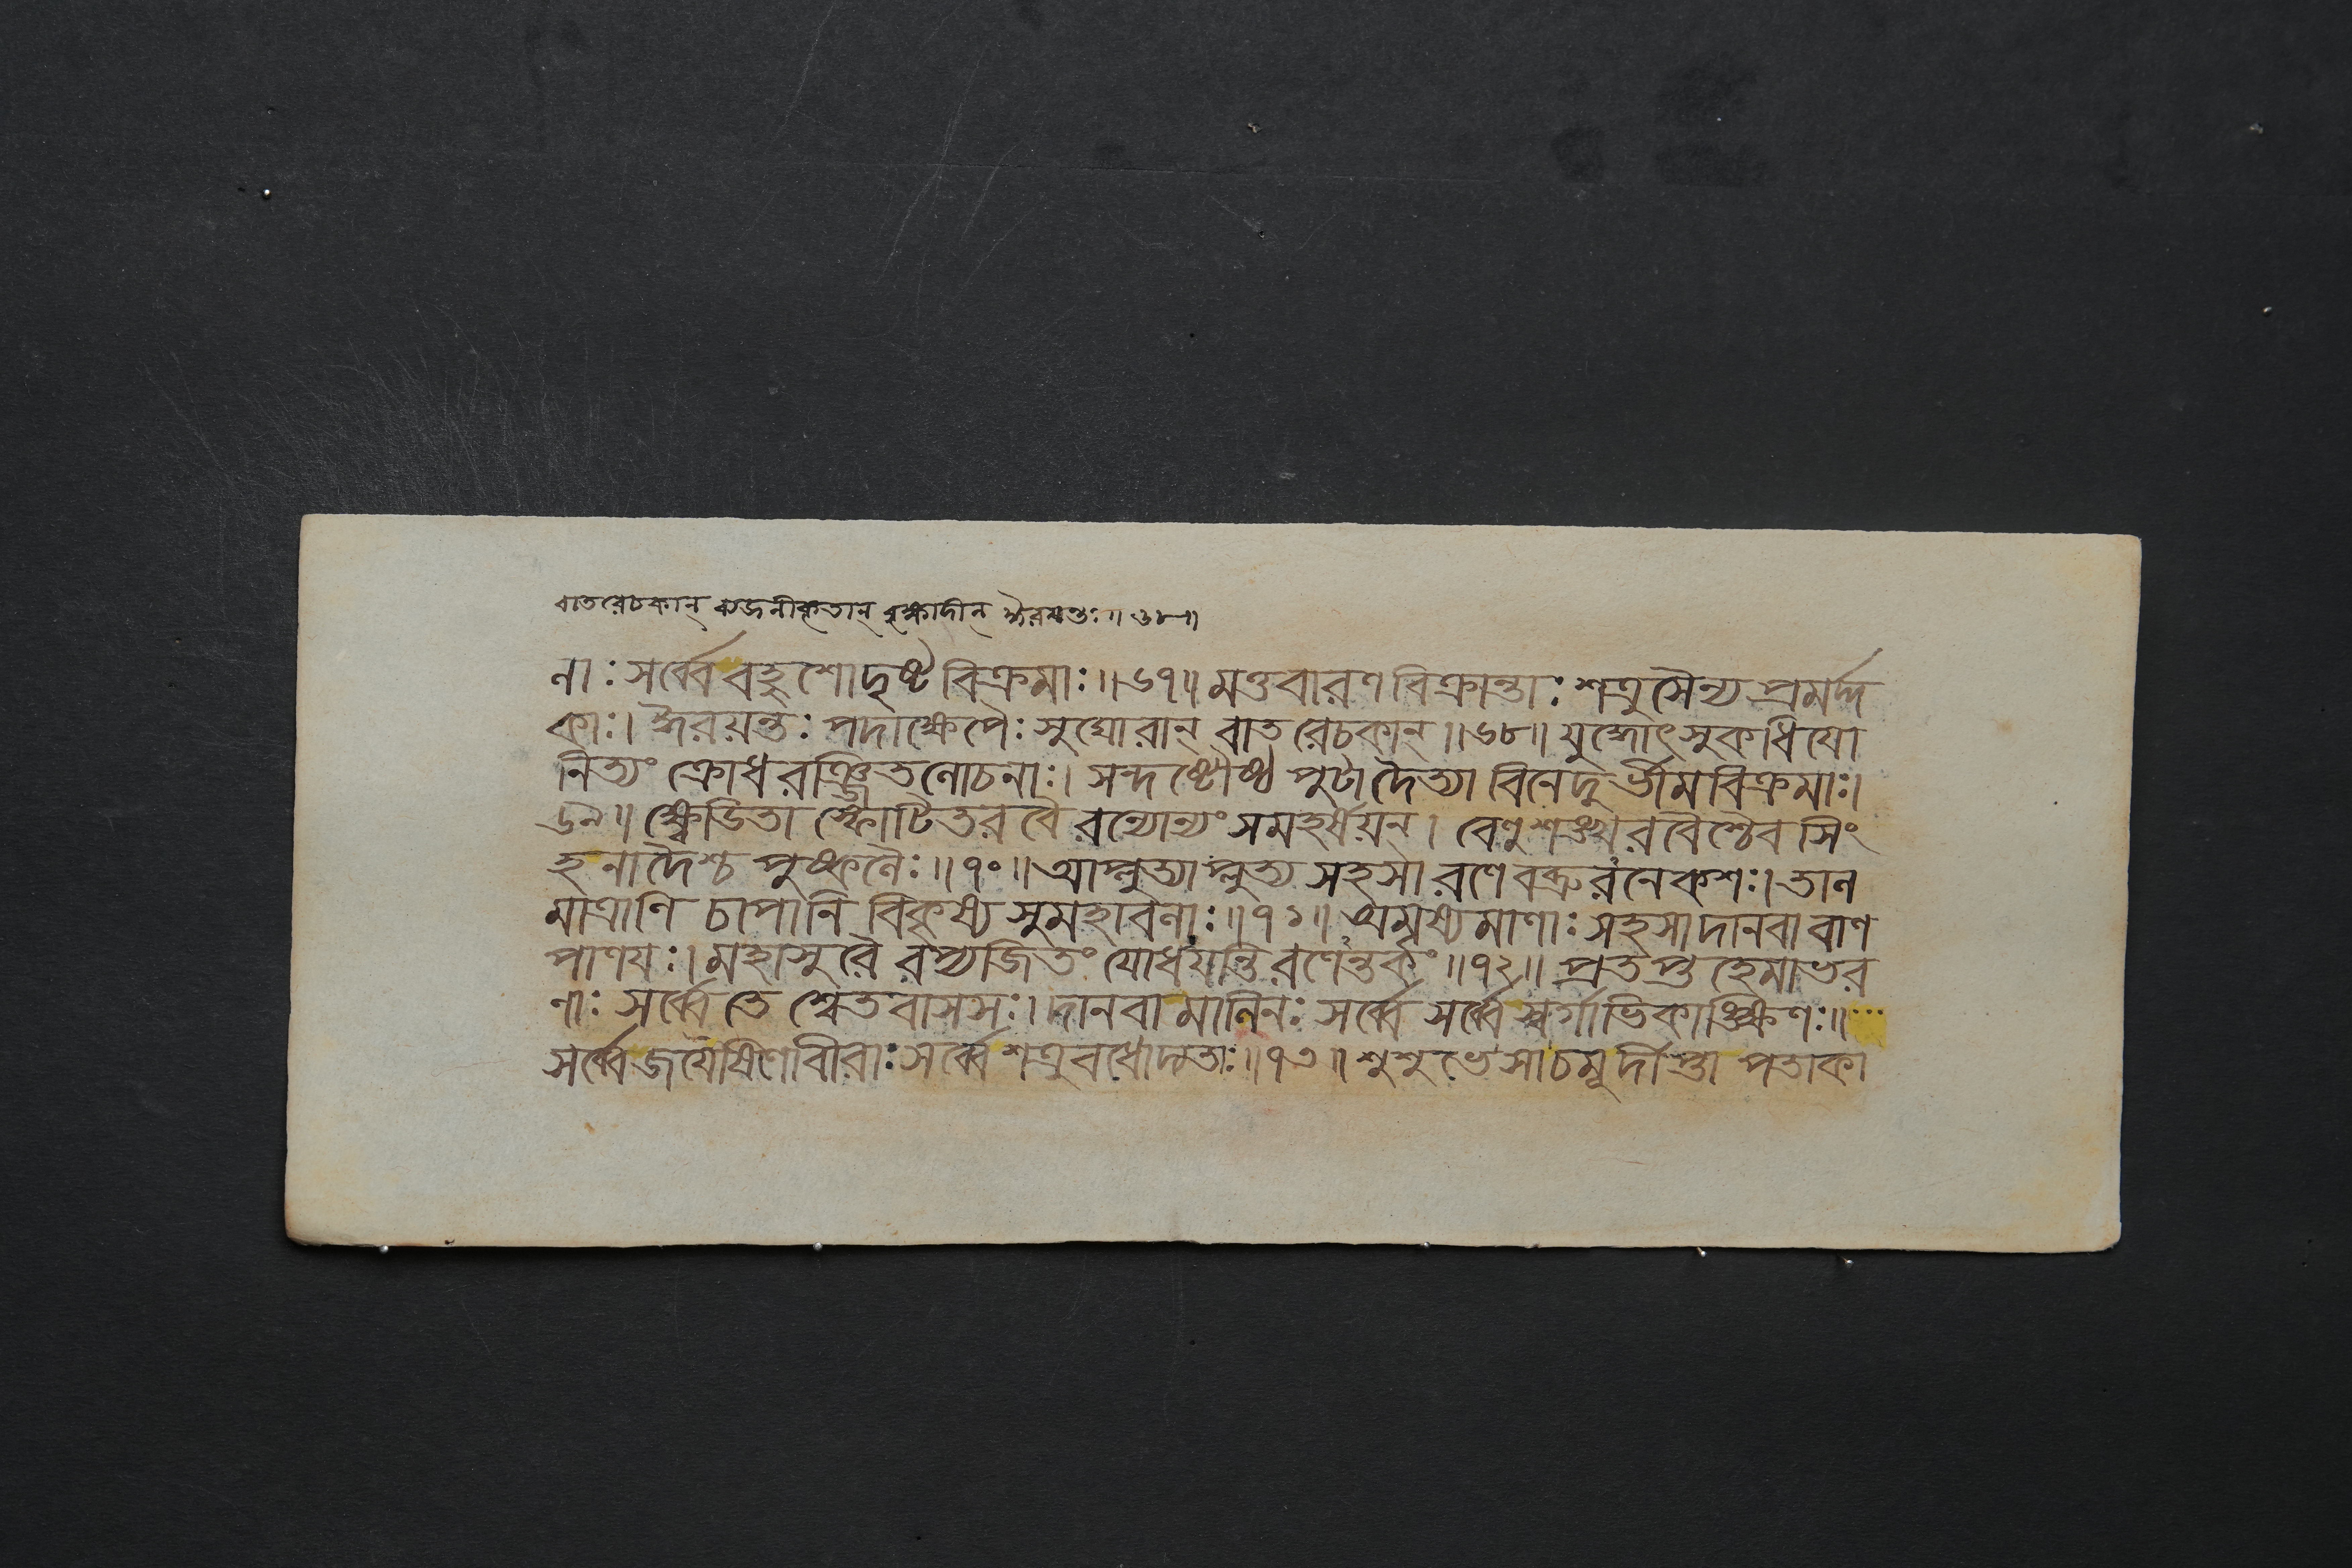 বাতরেচকান্ ব্যজনীকৃতান্ বৃক্ষাদীন্ ঈরয়ন্তঃ॥৬৮॥
নাঃ সর্ব্বে বহুশোদৃষ্টবিক্রমাঃ॥৬৭॥ মত্তবারণবিক্রান্তাঃ শত্রুসৈন্যপ্রমর্দ্দ
কাঃ। ঈরয়ন্তঃ পদাক্ষেপৈঃ সুঘোরান্ বাতরেচকান্॥৬৮॥ যুদ্ধোৎসুকধিয়ো
নিত্যং ক্রোধরঞ্জিতলোচনাঃ। সন্দষ্টৌষ্ঠপুটা দৈত্যা বিনেদুর্ভীমবিক্রমাঃ।
৬৯॥ ক্ষ্বেডিতাস্ফোটিতরবৈরন্যোন্যং সমহর্ষয়ন্। বেণুশঙ্খরবৈশ্চৈব সিং
হনাদৈশ্চ পুষ্কলৈঃ॥৭০॥ আপ্লুত্যাপ্লুত্য সহসা রণে বভ্রুরনেকশঃ। তাল
মাত্রাণি চাপানি বিকৃষ্য সুমহাবলাঃ॥৭১॥ অমৃষ্যমাণাঃ সহসা দানবা বাণ
পাণয়ঃ। মহাসুরৈরপ্যজিতং যোধয়ন্তি রণেন্তকং॥৭২॥ প্রতপ্তহেমাভর
ণাঃ সর্ব্বে তে শ্বেতবাসসঃ। দানবা মানিনঃ সর্ব্বে সর্ব্বে স্বর্গাভিকাঙ্ক্ষিণঃ॥
সর্ব্বে জয়ৈষিণো বীরাঃ সর্ব্বে শত্রুবধোদ্যতাঃ॥৭৩॥ শুশুভে সা চমূর্দীপ্তা পতাকা